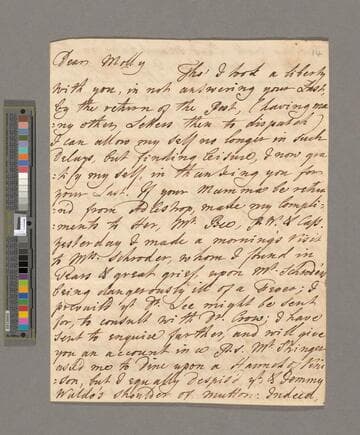 14
Dear Molly
Tho' I took a liberty
with you, in not answering your Last
by the return of the Post, (having ma=
=ny other Letters then to dispatch
I can allow my self no longer in such
delays, but finding leisure, I now gra=
=tify my self, in thanking you for
your Last. If your Mamma be retur
=nd from Adlestrop, made my Compli=
=ments to Her, Mrs
yesterday I made a morning's visit
to Mrs. Schroder, whom I found in
Tears & great grief, upon Mr. Schroder
being dangerously ill of a Fever; I
prevail'd yt Dr. Lee might be sent
for, to consult with Dr. Crow; I have
sent to enquire farther, and will give
you an account in a P.S. Mr. Stringer
us'd me to Dine upon a Haunch of Veni=
=son, but I equally despis'd yt & Jemmy
Waldo's shoulder of mutton: Indeed